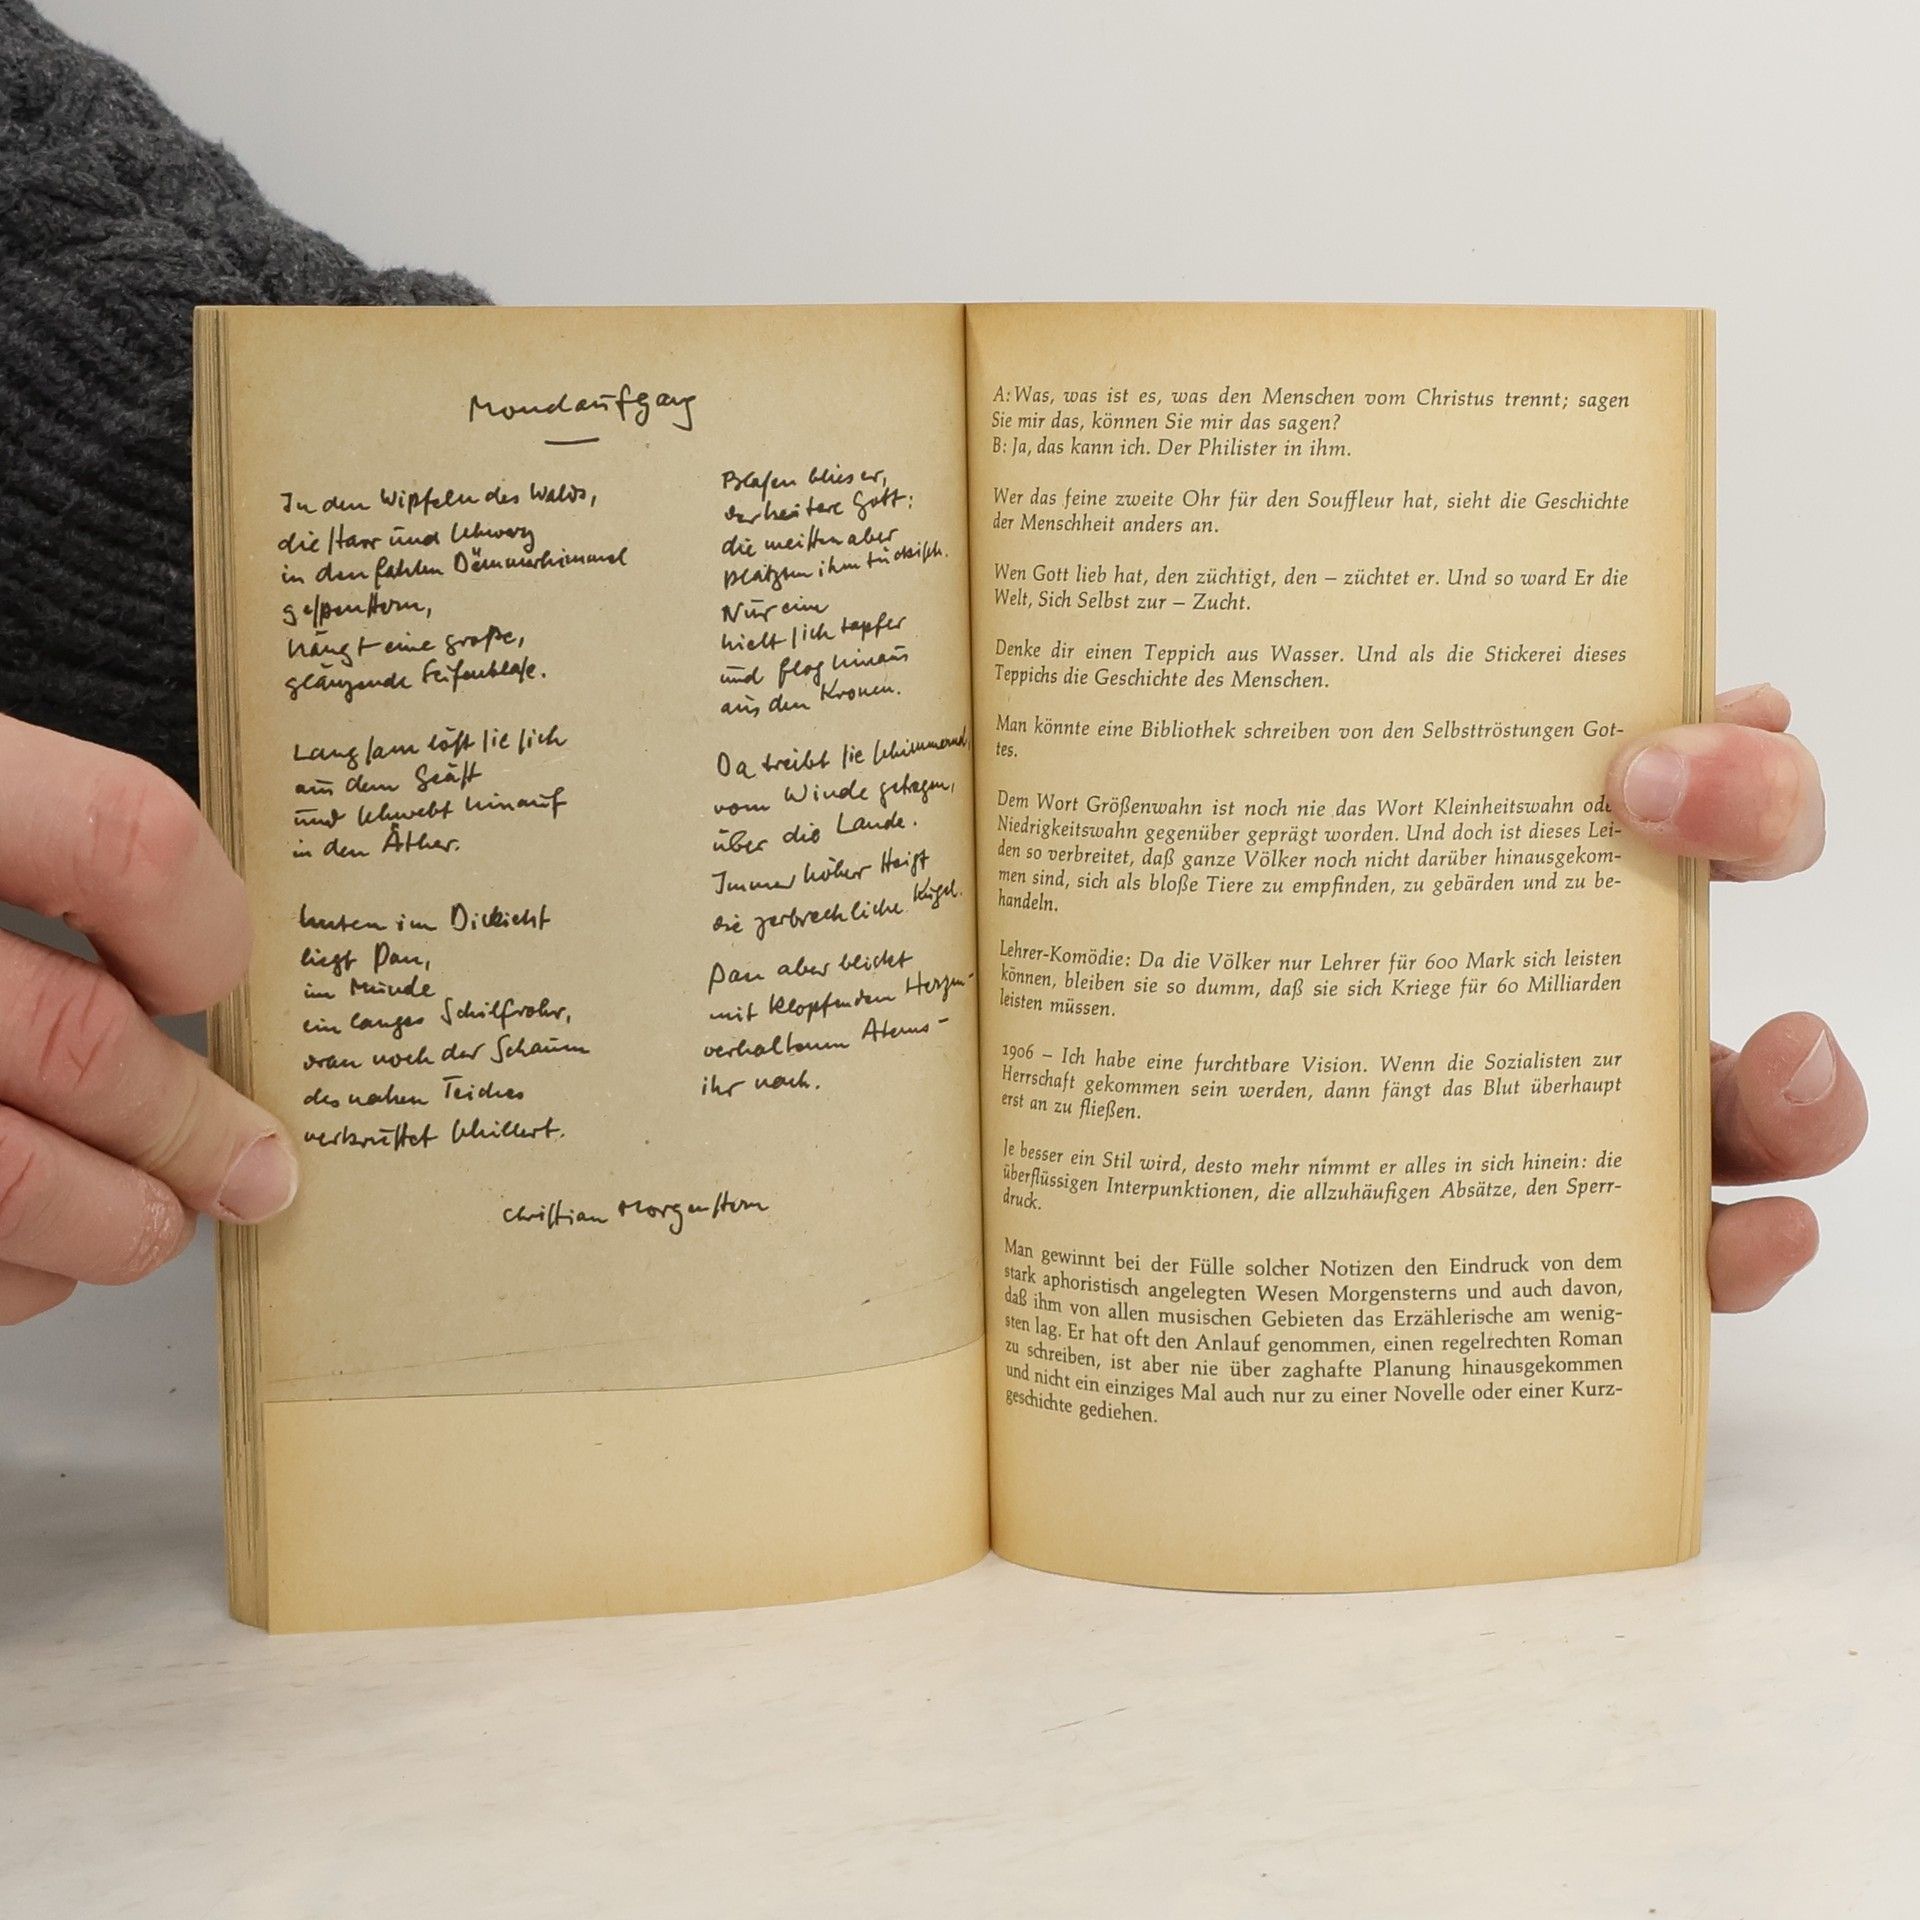 Mondaufgang
In den Wipfeln des Walds,
die starr und schwarz
in den fahlen Dämmerhimmel
gespenstern,
hängt eine große,
glänzende Seifenblase.
Langsam löst sie sich
aus dem Geäst
und schwebt hinauf
in den Äther.
Unten im Dickicht
liegt Pan,
im Munde
ein langes Schilfrohr,
dran noch der Schaum
des nahen Teiches
verkrustet schillert.
Blasen blies er,
der heitere Gott:
die meisten aber
platzten ihm tückisch.
Nur eine
hielt sich tapfer
und flog hinaus
aus den Kronen.
Da treibt sie schimmernd,
vom Winde getragen,
über die Lande.
Immer höher steigt
die zerbrechliche Kugel.
Pan aber blickt
mit klopfendem Herzen –
verhaltenen Atems –
ihr nach.
Christian Morgenstern
A: Was, was ist es, was den Menschen vom Christus trennt; sagen
Sie mir das, können Sie mir das sagen?
B: Ja, das kann ich. Der Philister in ihm.
Wer das feine zweite Ohr für den Souffleur hat, sieht die Geschichte
der Menschheit anders an.
Wen Gott lieb hat, den züchtigt, den – züchtet er. Und so ward Er die
Welt, Sich Selbst zur – Zucht.
Denke dir einen Teppich aus Wasser. Und als die Stickerei dieses
Teppichs die Geschichte des Menschen.
Man könnte eine Bibliothek schreiben von den Selbsttröstungen Got-
tes.
Dem Wort Größenwahn ist noch nie das Wort Kleinheitswahn ode
Niedrigkeitswahn gegenüber geprägt worden. Und doch ist dieses Lei-
den so verbreitet, daß ganze Völker noch nicht darüber hinausgekom-
men sind, sich als bloße Tiere zu empfinden, zu gebärden und zu be-
handeln.
Lehrer-Komödie: Da die Völker nur Lehrer für 600 Mark sich leisten
können, bleiben sie so dumm, daß sie sich Kriege für 60 Milliarden
leisten müssen.
1906 – Ich habe eine furchtbare Vision. Wenn die Sozialisten zur
Herrschaft gekommen sein werden, dann fängt das Blut überhaupt
erst an zu fließen.
Je besser ein Stil wird, desto mehr nimmt er alles in sich hinein: die
überflüssigen Interpunktionen, die allzuhäufigen Absätze, den Sperr-
druck.
Man gewinnt bei der Fülle solcher Notizen den Eindruck von dem
stark aphoristisch angelegten Wesen Morgensterns und auch davon,
daß ihm von allen musischen Gebieten das Erzählerische am wenig-
sten lag. Er hat oft den Anlauf genommen, einen regelrechten Roman
zu schreiben, ist aber nie über zaghafte Planung hinausgekommen
und nicht ein einziges Mal auch nur zu einer Novelle oder einer Kurz-
geschichte gediehen.